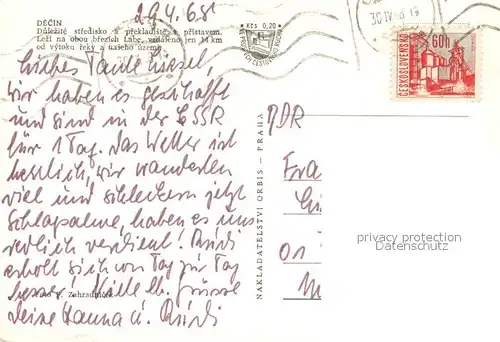 29.4.68
DĚČÍN
Důležité středisko a překladiště s přístavem.
Leží na obou březích Labe, vzdáleno jen 14 km
od výtoku řeky z našeho území.
Kčs 0,20
30.IV.68-19
ČESKOSLOVENSKO
60h
Liebes Tantel
wir haben es geschafft
und sind in der ČSSR
für 1 Tag. Das Wetter ist
herrlich, wir wanderten
viel und schleckern jetzt
Schlagsahne, haben es uns
redlich verdient!
erholt sich von Tag zu Tag
besser! Viele lb. Grüsse
Deine Hanna u.
Foto Zahradníček
NAKLADATELSTVÍ ORBIS - PRAHA
DDR
Fra
01
privacy protection
Datenschutz